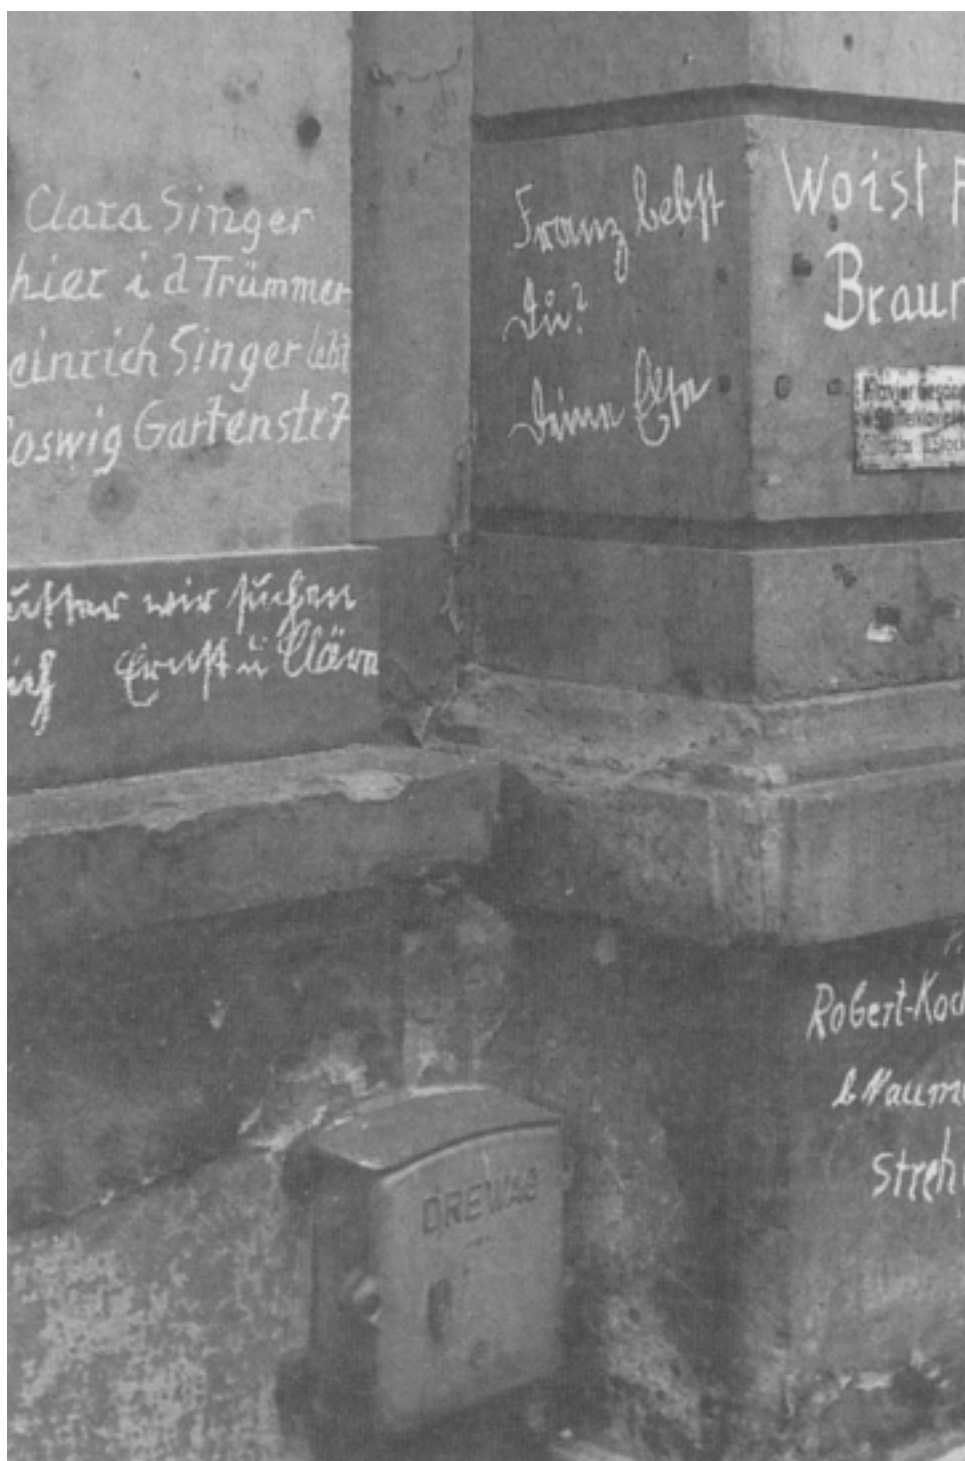 Clara Singer
hier i d Trümmer
einrich Singer lebt
oswig Gartenstr 7
utter wir suchen
ich Ernst ü Cläre
Franz lebst
Dü?
Deine Else
Wo ist
Braun
Klavier Gesang
II. Stock
Robert-Koch
b Naum
Streh
DREWAG